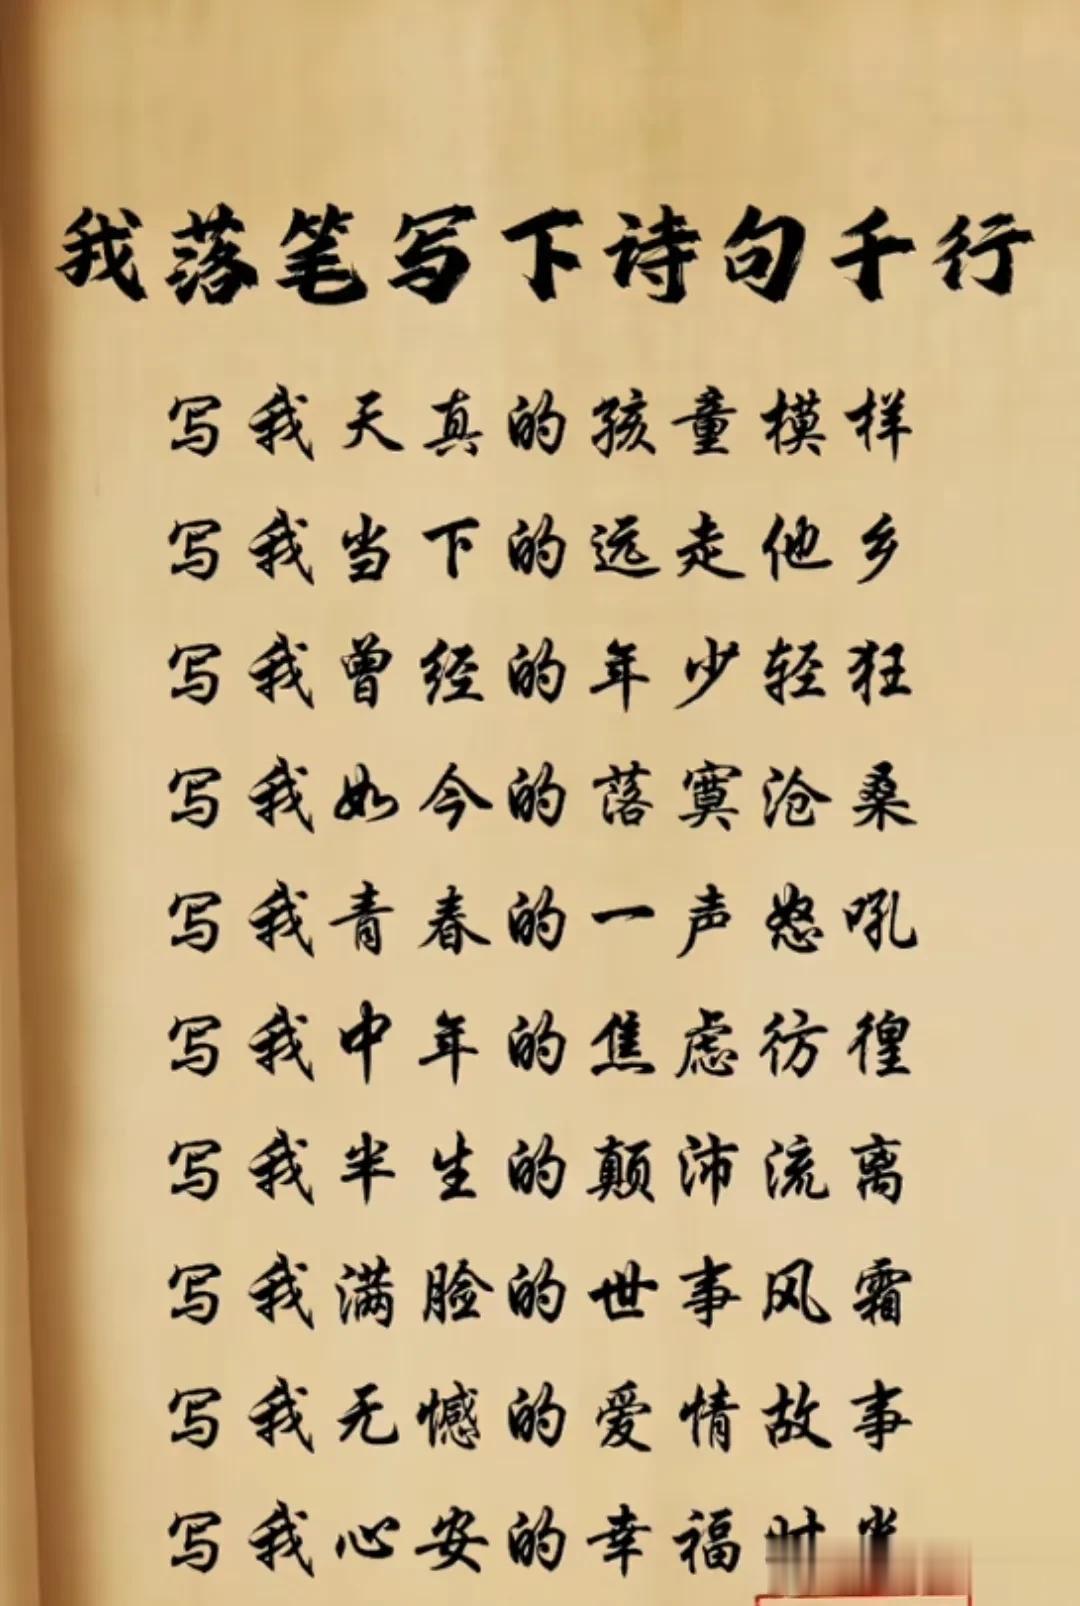 我落笔写下诗句千行
写我天真的孩童模样
写我当下的远走他乡
写我曾经的年少轻狂
写我如今的落寞沧桑
写我青春的一声怒吼
写我中年的焦虑彷徨
写我半生的颠沛流离
写我满脸的世事风霜
写我无憾的爱情故事
写我心安的幸福时光